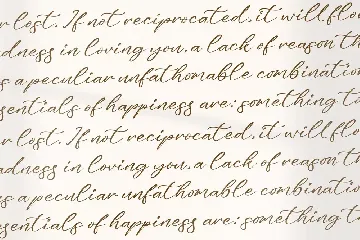 r lost. If not reciprocated, it will flo
adness in loving you, a lack of reason th
s a peculiar unfathomable combinatio
sentials of happiness are: something t
r lost. If not reciprocated, it will flo
adness in loving you, a lack of reason t
s a peculiar unfathomable combinatio
sentials of happiness are: something t